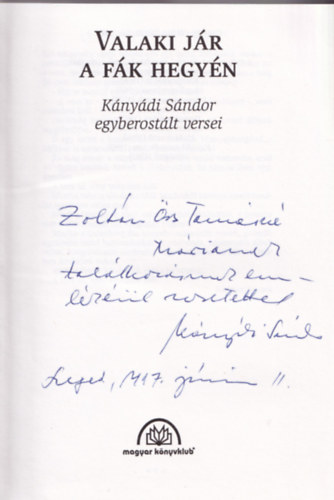 VALAKI JÁR
A FÁK HEGYÉN
Kányádi Sándor
egyberostált versei
Zoltán Tamásné
Máriának
találkozásunk em-
lékéül szeretettel
Kányádi Sándor
Szeged, június 11.
magyar könyvklub